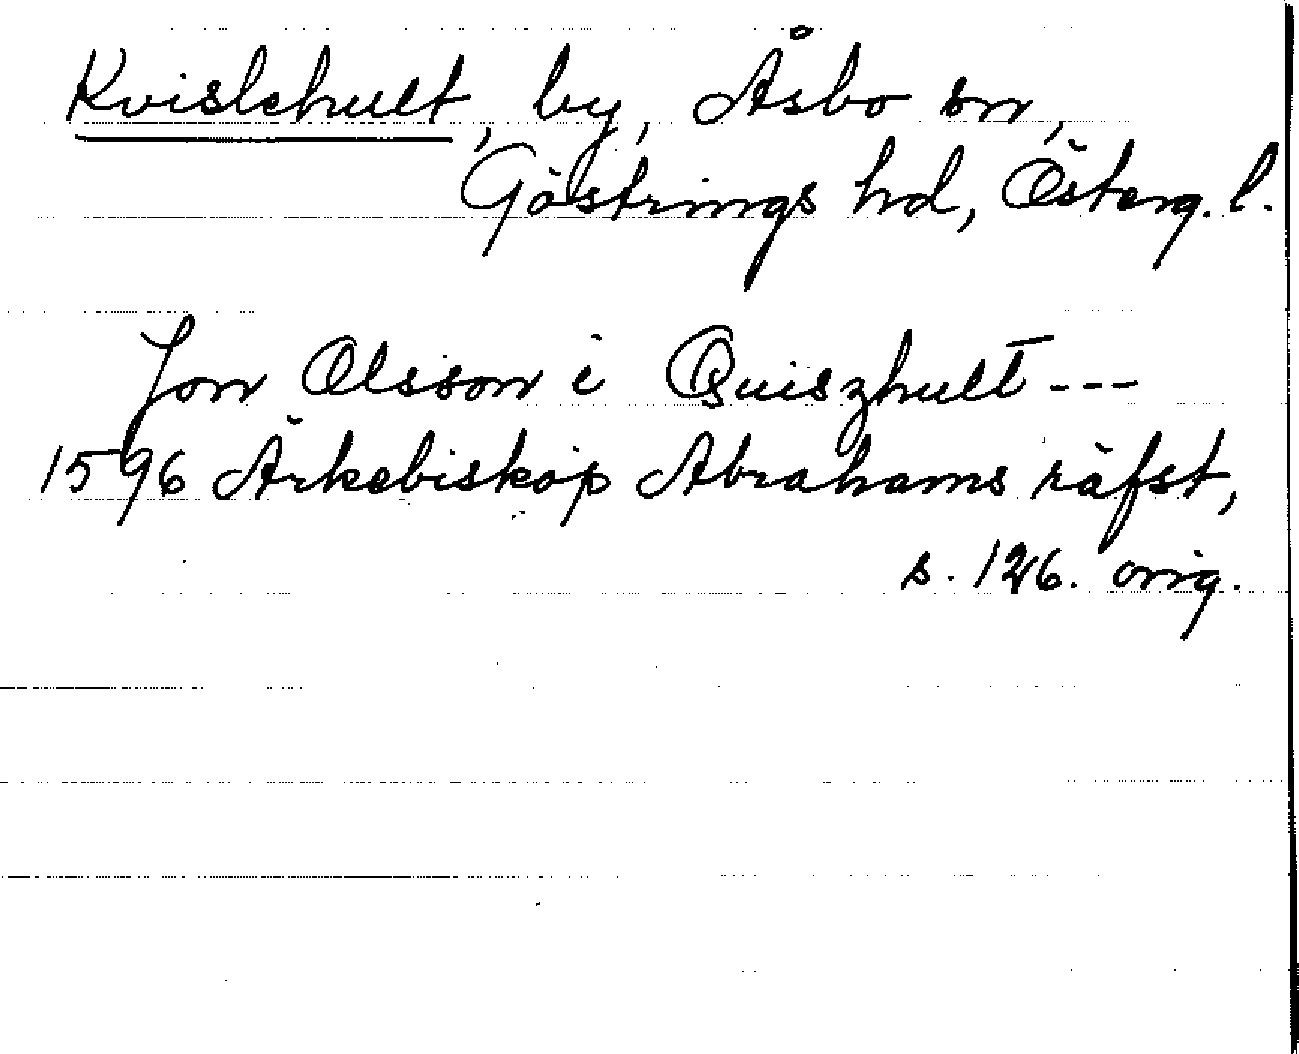 Kvislehult, by, Åsbo sn,
Göstrings hd, Österg. l.
Jon Olsson i Quiszhult ---
1596 Ärkebiskop Abrahams räfst,
s. 126. orig.